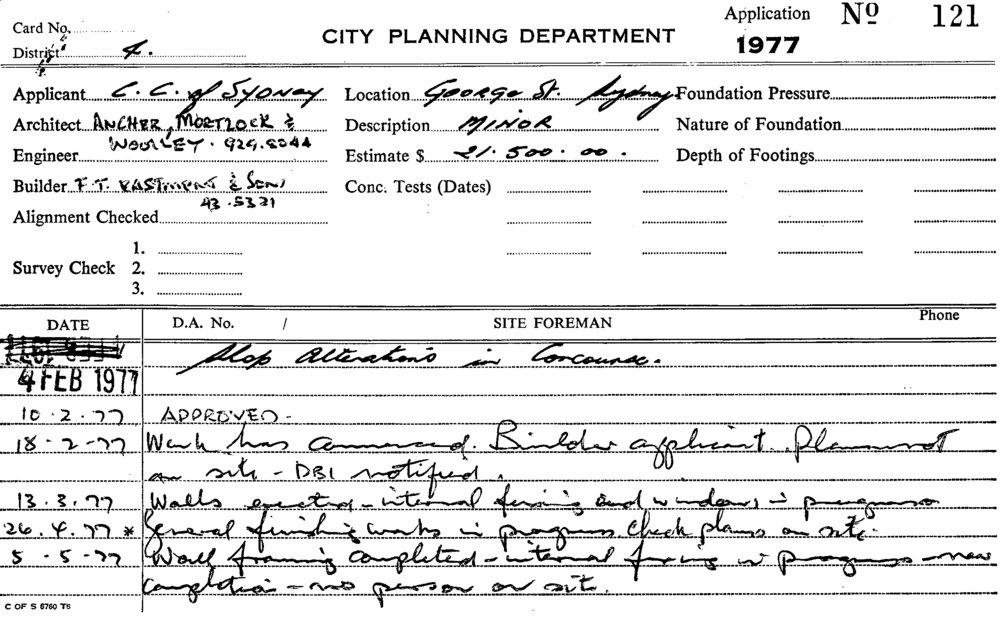 Application Nº 121
Card No.
District 4.
CITY PLANNING DEPARTMENT
1977
Applicant C. C. of SYDNEY Location George St. Sydney Foundation Pressure
Architect ANCHER, MORTLOCK & Description MINOR Nature of Foundation
WOOLLEY. 929.8044
Engineer Estimate $ 21.500.00. Depth of Footings
Builder F.T. EASTMENT & Sons Conc. Tests (Dates)
43.5321
Alignment Checked
1.
Survey Check 2.
3.
DATE D.A. No. / SITE FOREMAN Phone
Shop Alterations in Concourse.
4 FEB 1977
10.2.77 APPROVED-
18-2-77 Work has commenced. Builder applicant. Plans not
on site - DBI notified.
13.3.77 Walls erected - internal and windows in progress
26.4.77 * General finishing works in progress. Check plans on site.
5-5-77 Wall framing completed - internal in progress - near
completion - no person on site.
C OF S 6760 T6